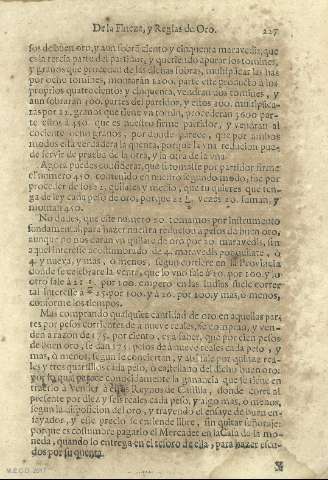 De la Fineza, y Reglas de Oro. 227
sos de buen oro, y aun sobra ciento y cinquenta maravedis, que
es la tercia parte del partidor, y queriendo apurar los tomines,
y granos que proceden de las dichas sobras, multiplicar las has
por ocho tomines, montarán 1200. parte este producto à los
proprios quatrocientos y cinquenta, vendrán dos tomines, y
aun sobraràn 300. partes del partidor, y estos 300. multiplica-
ras por 12. granos que tiene vn tomin, procederan 3600 par-
te estos à 450. que es nuestro firme partidor, y vendràn al
cociente ocho granos, por donde parece, que por ambos
modos està verdadera la quenta, porque la vna reducion pue-
de servir de prueba de la otra, y la otra de la vna.
Agora puedes considerar, que
el numero 450. contenido en nuestro segundo modo, fue por
proceder de los 22. quilates y medio, que tu quieres que ten-
ga de ley cada peso de oro, porque 22 ½. vezes 20. suman, y
montan 450.
No dudes, que este numero 20. tomamos por instrumento
fundamental, para hazer nuestra reducion a pesos de buen oro,
aunque no nos daràn vn quilate de oro por 20. maravedis, sin
aquel interesse acostumbrado de 4. maravedis por quilate, ò
4. y nueve, y mas, ò menos, segun corriere en la Provincia
donde se celebrare la venta, que lo vno sale à 20. por 100. y lo
otro sale à 22 ½. por 100. empero en las Indias suele correr
tal interesse à 25. por 100. y à 26. por 100. y mas, ò menos,
conforme los tiempos.
Mas comprando qualquier cantidad de oro en aquellas par-
tes por pesos corrientes de à nueve reales, se compran, y ven-
den à razon de 175. por ciento, es à saber, que por cien pesos
de buen oro, se dan 175. pesos de à nueve reales cada peso, y
mas, ò menos, segun se conciertan, y assi sale por quinze rea-
les y tres quartillos cada peso, ò castellano del dicho buen oro:
por lo qual parece conocidamente la ganancia que se tiene en
traerlo à vender à estos Reynos de Castilla, donde corre al
presente por diez y seis reales cada peso, y algo mas, ò menos,
segun la disposicion del oro, y trayendo el ensaye de buen en-
sayador, y este precio se entiende libre, sin quitar señoreaje:
porque es costumbre pagarlo el Mercader en la Casa de la mo-
neda, quando lo entrega en el tesoro de ella, para hazer escu-
dos por su quenta.
M.E.C.D. 2017